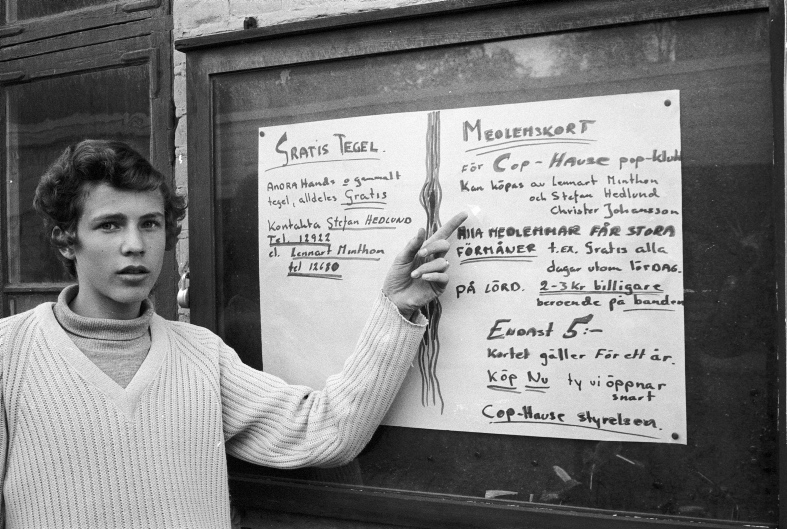 GRATIS TEGEL.
ANDRA Hands o gammalt
tegel, alldeles Gratis
Kontakta Stefan HEDLUND
Tel. 12922
el. Lennart Minthon
tel 12680
MEDLEMSKORT
FÖR COP-HAUSE pop-klubb
Kan köpas av Lennart Minthon
och Stefan Hedlund
Christer Johansson
Alla MEDLEMMAR FÅR STORA
FÖRMÅNER t.ex. Gratis alla
dagar utom LÖRDAG.
PÅ LÖRD. 2-3 kr billigare
beroende på banden
ENDAST 5:-
Kortet gäller För ett år.
Köp Nu ty vi öppnar
snart
Cop-Hause styrelsen.